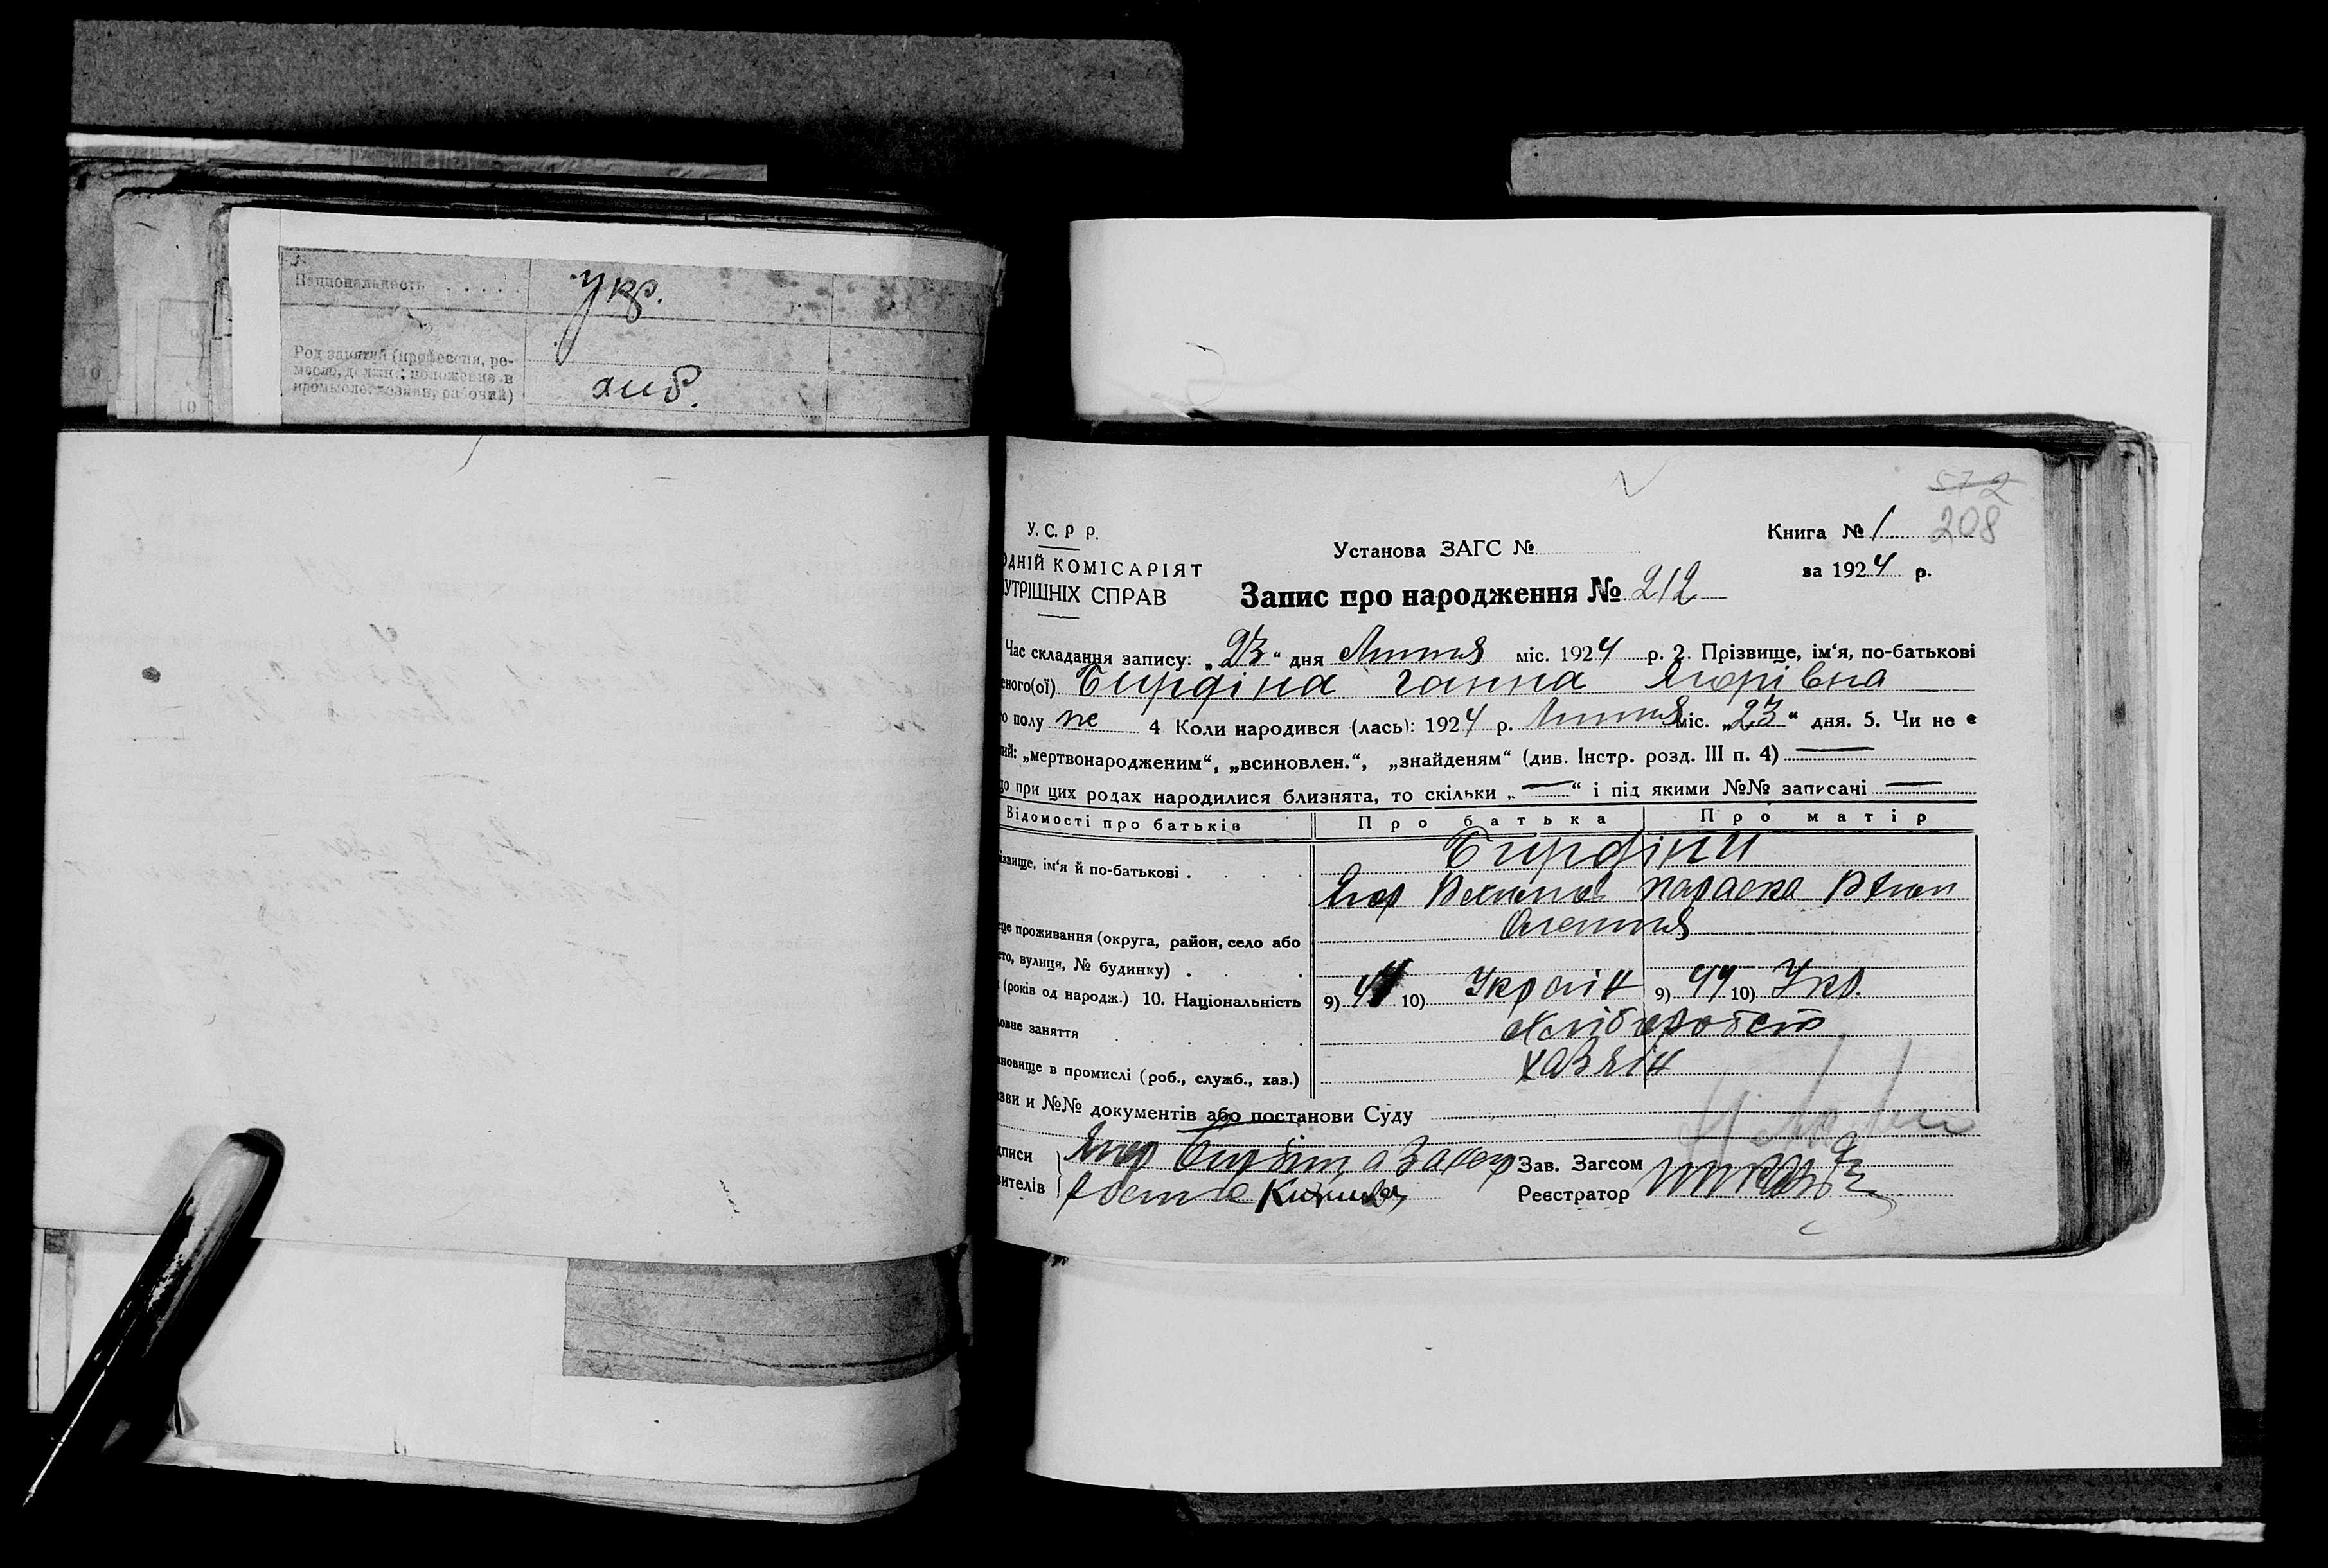 Национальность . . . . . укр.
Род занятий (профессия, ре-
месло, должн.; положение в
промысле: хозяин, рабочий) хиб.
572
208
У. С. Р Р.
Установа ЗАГС №
Книга № 1
ОДНІЙ КОМІСАРІЯТ
за 1924 р.
УТРІШНІХ СПРАВ
Запис про народження № 212
Час складання запису: „23“ дня Липня міс. 1924 р. 2. Прізвище, ім‘я, по-батькові
еного(ої) Бирдіна Ганна Ягорівна
о полу же 4 Коли народився (лась): 1924 р. Липня міс. „23“ дня. 5. Чи не е
ий: „мертвонародженим“, „всиновлен.“, „знайденям“ (див. Інстр. розд. III п. 4) —
до при цих родах народилися близнята, то скільки „—“ і під якими №№ записані —
Відомості про батьків Про батька Про матір
Бирдіни
ізвище, ім‘я й по-батькові .
Ягор Параска
це проживання (округа, район, село або
сто, вулиця, № будинку) .
(років од народж.) 10. Національність 9) 10) Україн 9) 44 10) Укр.
овне заняття Хліборобст
ановище в промислі (роб., служб., хаз.) хазяін
азви и №№ документів або постанови Суду
дписи Ягор Бирдін, а
вителів
Зав. Загсом
Реєстратор